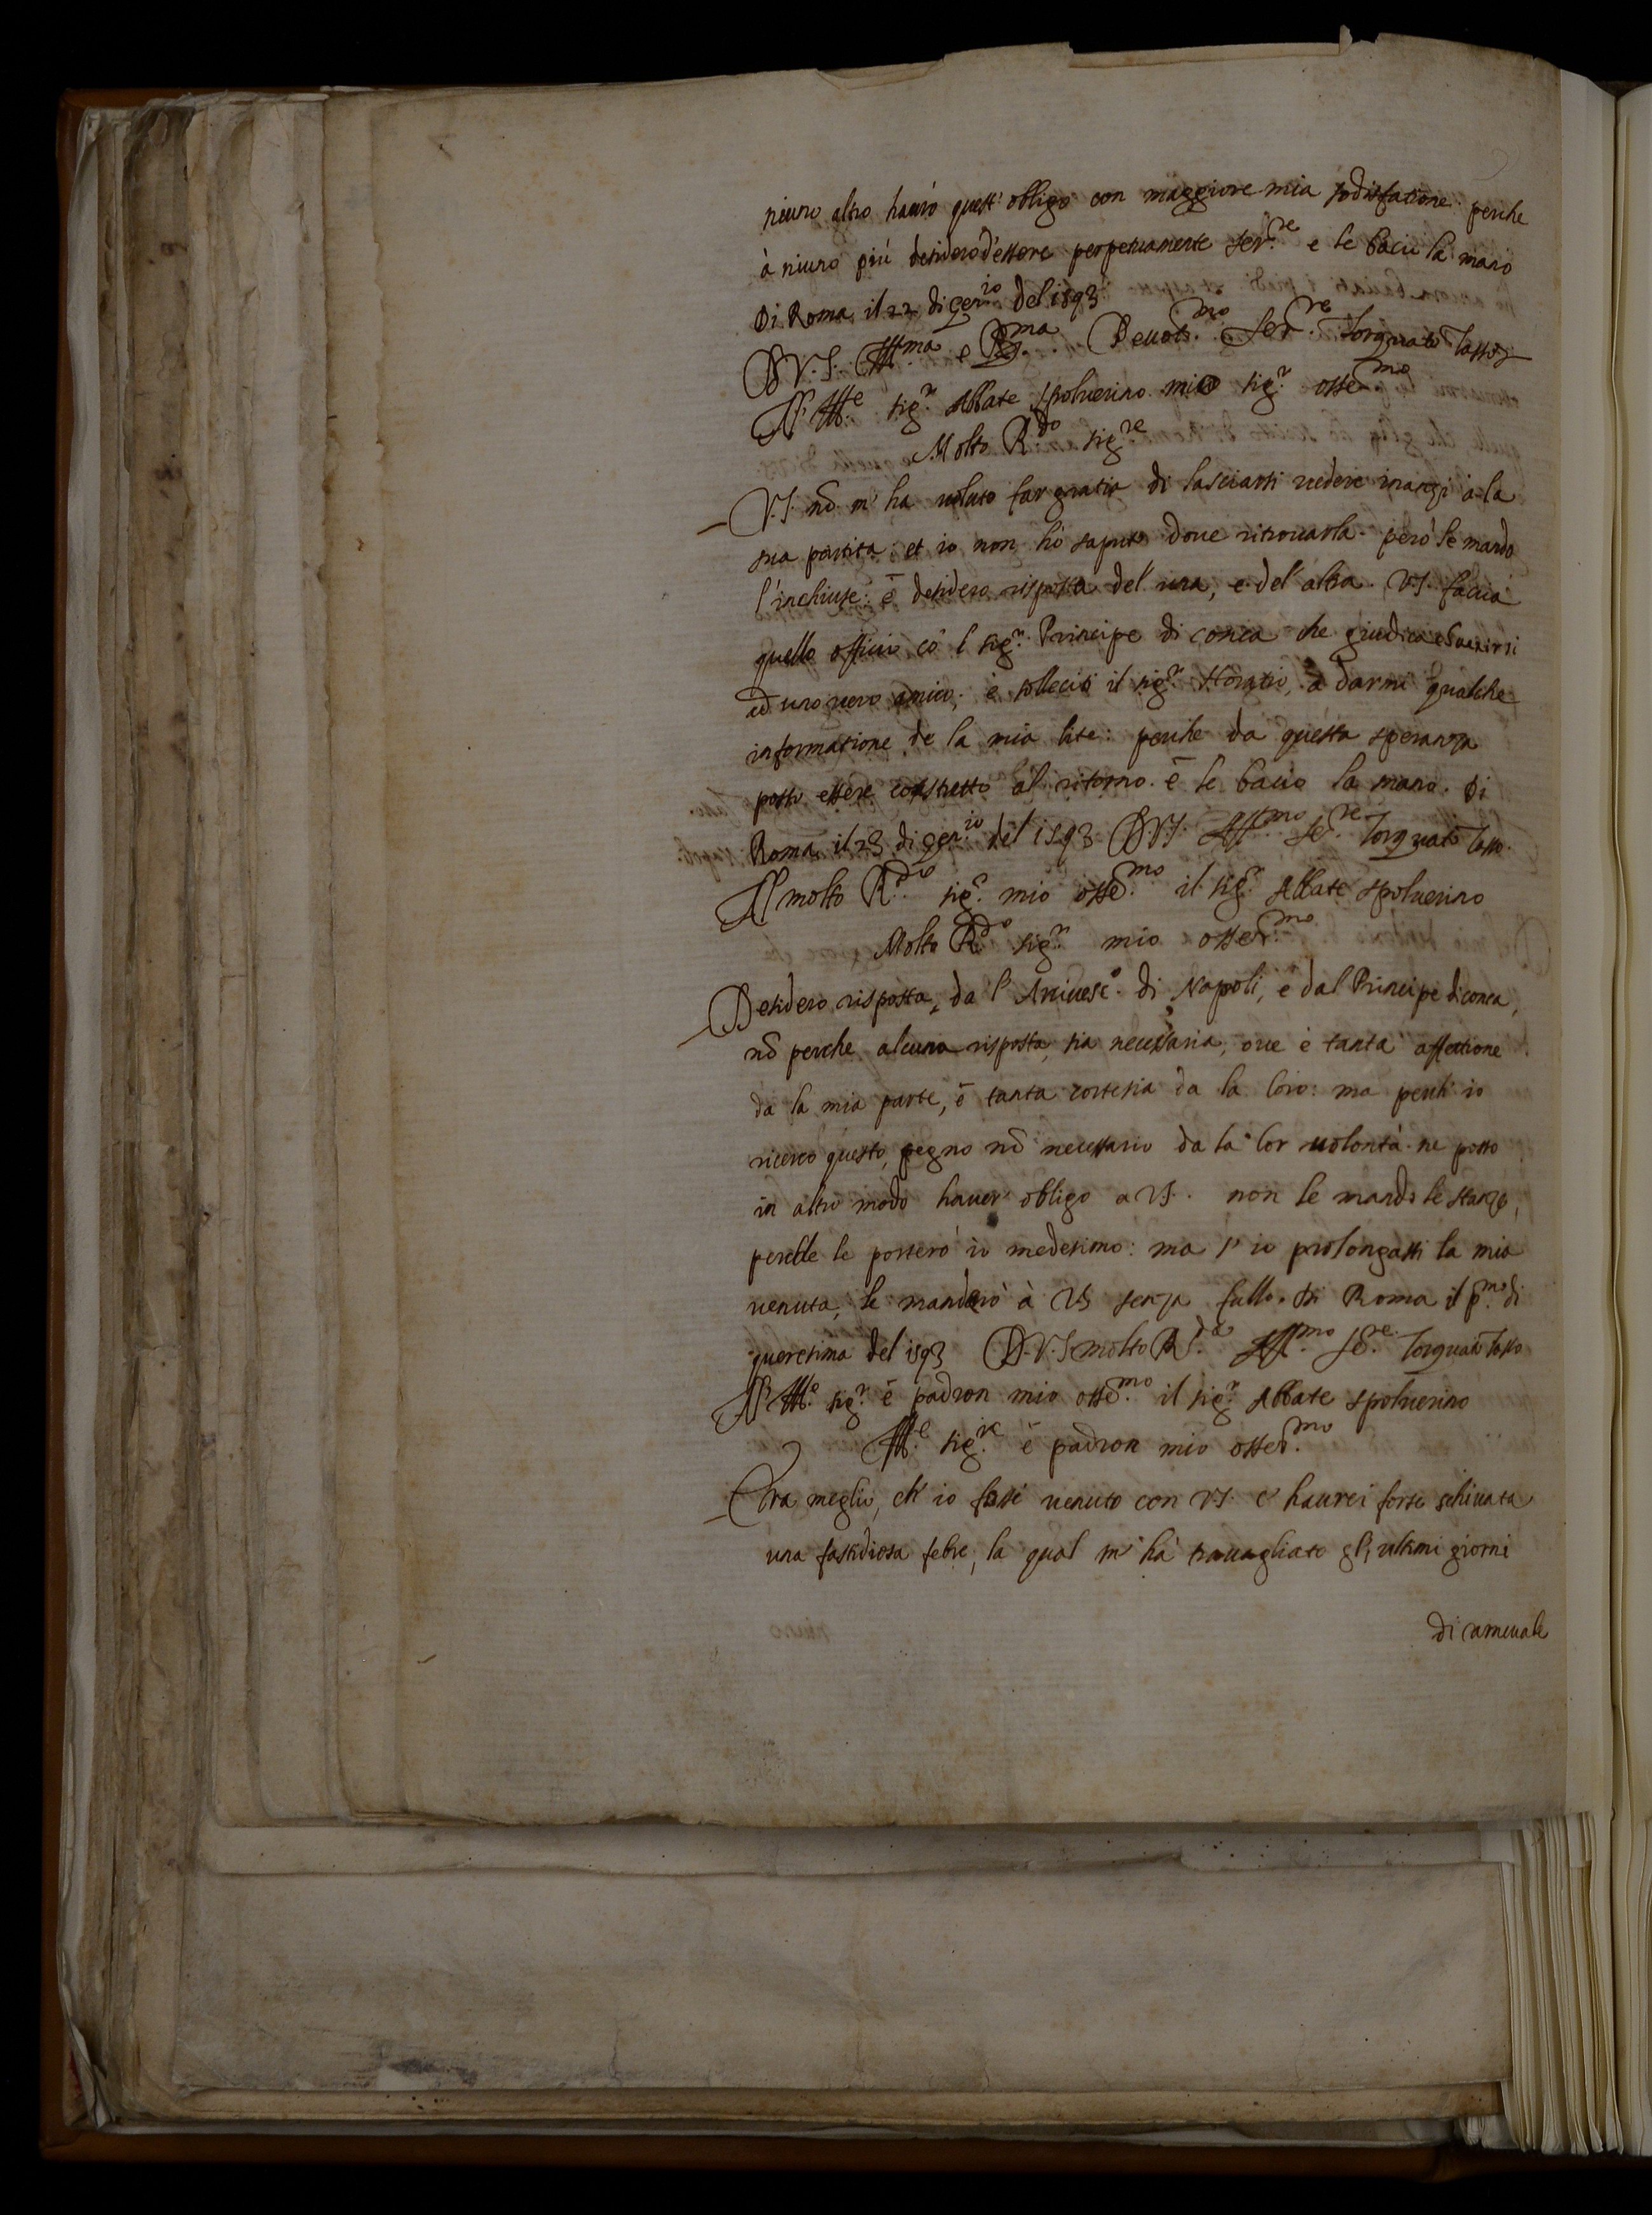 niuno altro havrò quest' obligo con maggiore mia sodisfatione. perche
à niuno più desidero d'essere perpetuamente ser.re e le bacio la mano
Di Roma il 22 di gen.io del 1593
D.V.S. Ill.ma e R.ma Devotis.mo Ser.re Torquato Tasso
All' Ill.e sig.r Abbate spolverino mio sig.r osse.mo
Molto R.do sig.re
V.S. nō m' ha voluto far gratia di lasciarsi vedere inanzi a la
sua partita: et io non hò saputo dove ritrovarla. però le mando
l'inchiuse: è desidero risposta del' una, e del' altra. VS. faccia
quello officio cō l sig.r Principe di conca che giudica convenirsi
ad uno vero amico, è solleciti il sig.r Horatio, à darmi qualche
informatione de la mia lite: perche da questa speranza
posso essere constretto al ritorno. è le bacio la mano. Di
Roma il 23 di gen.io del 1593 D.VS. Aff.mo se.re Torquato Tasso.
Al molto R.do sig.r mio osse.mo il sig.r Abbate spolverino
Molto R.do sig.r mio osser.mo
Desidero risposta, da l' Arcivesc.o di Napoli, è dal Principe di conca,
nō perche alcuna risposta, sia necessaria, ove è tanta affettione
da la mia parte, è tanta cortesia da la loro: ma perch' io
ricerco questo, pegno nō necessario da la lor volontà. ne posso
in altro modo haver' obligo a VS. non le mando le stanze,
perche le porterò io medesimo: ma s' io prolongassi la mia
venuta, le manderò à VS senza fallo. Di Roma il p.mo di
queresima del 1593 D.V.S. molto R.da Aff.mo se.re Torquato Tasso
All' Ill.e sig.r è padron mio osse.mo il sig.r Abbate spolverino
Ill.e sig.re è padron mio osser.mo
Era meglio, ch' io fossi venuto con VS. c' havrei forse schivata
una fastidiosa febre, la qual m' hà travagliato gli ultimi giorni
di carnevale